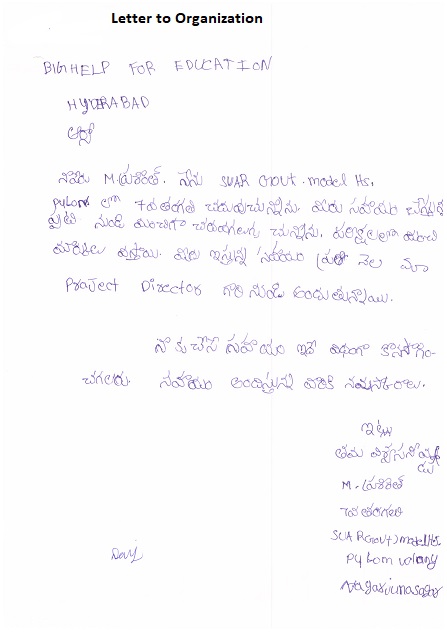 Letter to Organization
BIGHELP FOR EDUCATION
HYDERABAD
ఆర్యా
నాపేరు M. ప్రశాంత్. నేను SVAR Govt. model Hs,
pylon లో 7వ తరగతి చదువుచున్నాను. మీరు సహాయం చేస్తున్న
నుండి మంచిగా చదువగలుగు చున్నాను. పరీక్షలలో మంచి
మార్కులు వస్తాయి. మీరు ఇస్తున్న సహాయం ప్రతి నెల మా
Project Director గారి నుండి అందుతున్నాయి.
నాకు చేసే సహాయం ఇదే విధంగా కొనసాగిం-
చగలరు. సహాయం అందిస్తున్న వారికి నమస్కారాలు.
ఇట్లు
తమ విశ్వసనీయుడు
M. ప్రశాంత్
7వ తరగతి
SVAR(Govt) model Hs.
pylon colony
Nagarjunasagar